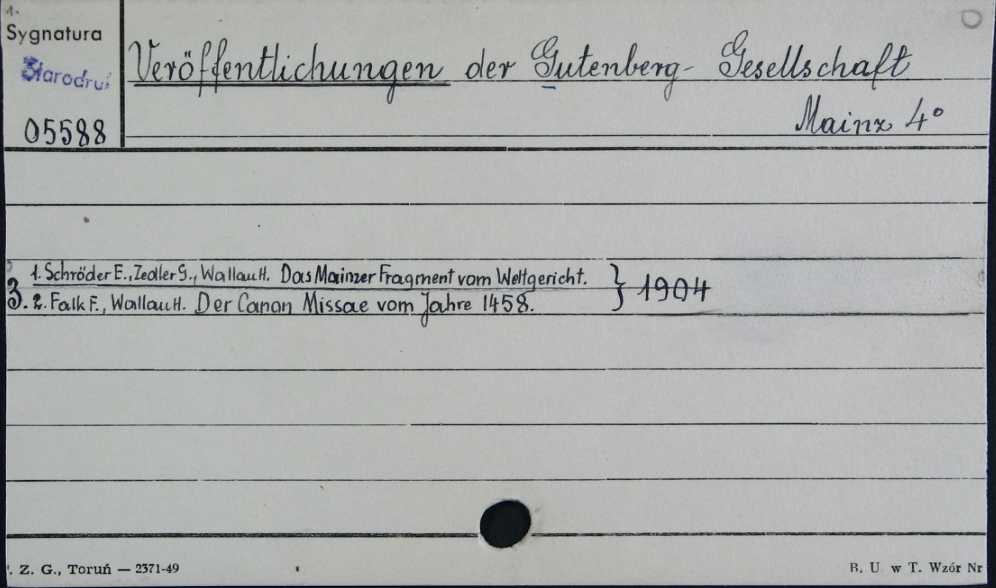 1.
Sygnatura
Starodruk
05588
Veröffentlichungen der Gutenberg-Gesellschaft
Mainz 4°
3. 1. Schröder E., Zedler G., Wallau H. Das Mainzer Fragment vom Weltgericht. } 1904
2. Falk F., Wallau H. Der Canon Missae vom Jahre 1458.
. Z. G., Toruń — 2371-49
B. U. w T. Wzór Nr